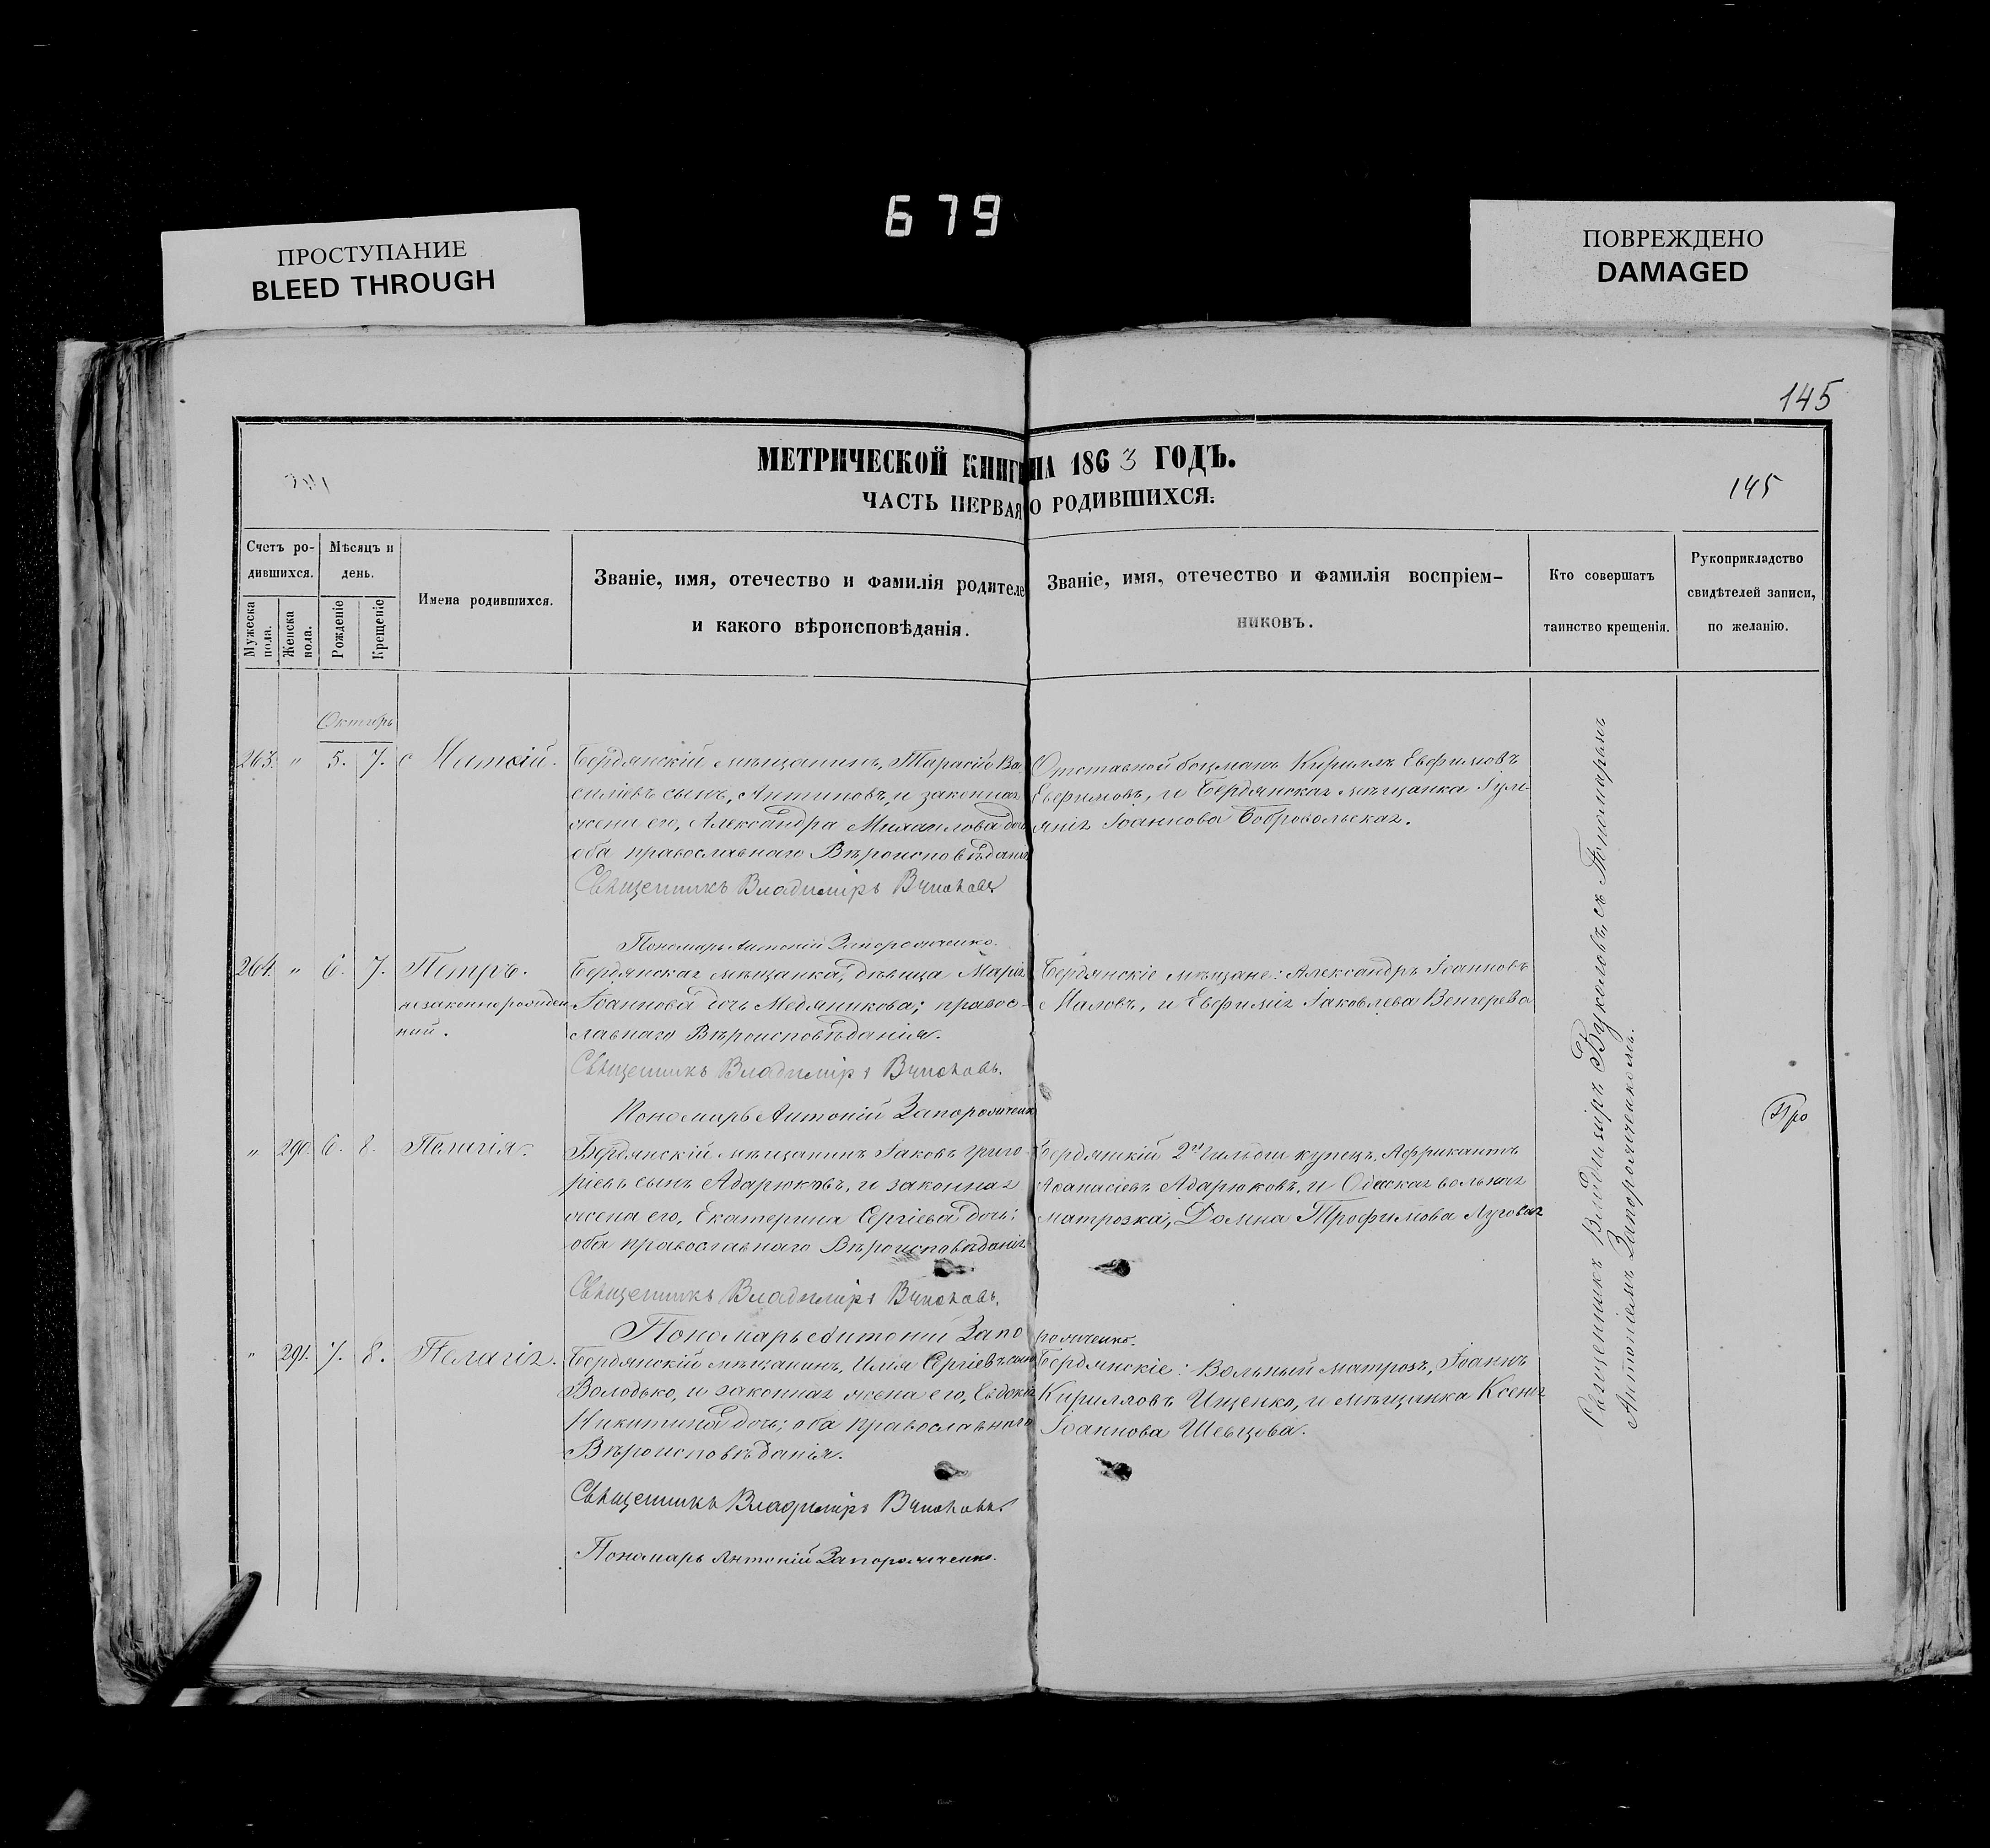 679
ПРОСТУПАНИЕ
BLEED THROUGH
ПОВРЕЖДЕНО
DAMAGED
145
МЕТРИЧЕСКОЙ КНИГИ НА 1863 ГОДЪ.
ЧАСТЬ ПЕРВАЯ О РОДИВШИХСЯ.
145
Счетъ ро-
дившихся.
Мужеска пола.
Женска пола.
Мѣсяцъ и
день.
Рожденіе
Крещеніе
Имена родившихся.
Званіе, имя, отечество и фамилія родителе
и какого вѣроисповѣданія.
Званіе, имя, отечество и фамилія воспріем-
никовъ.
Кто совершатъ
таинство крещенія.
Рукоприкладство
свидѣтелей записи,
по желанію.
263. " 5. 7.
Бердянскій мѣщанинъ, Тарасій Ва
силіевъ сынъ, Антиповъ, и законная
жена его, Александра Михаилова дочь
оба православнаго Вѣроисповѣданія
Священникъ Владиміръ
Пономарь Антоній Запорожченко.
Отставной боцманъ Кириллъ Евфимовъ
Евфимовъ, и Бердянская мѣщанка Іулі-
янія Іоаннова Бобровольская.
264. " 6. 7. Петръ.
незаконнорожден
ный.
Бердянская мѣщанка, дѣвица Марія
Іоаннова дочь Медяникова; правос-
славнаго Вѣроисповѣданія.
Священникъ Владиміръ
Пономарь Антоній Запорожченко
Бердянскіе мѣщане: Александръ Іоанновъ
Маловъ, и Евфимія Іаковлева Венгерева
" 290. 6. 8. Пелагія.
Бердянскій мѣщанинъ Іаковъ Григо-
ріевъ сынъ Адарюковъ, и законная
жена его, Екатерина Сергіева дочь;
оба православнаго Вѣроисповѣданія
Священникъ Владиміръ
Пономарь Антоній Запорожченко.
Бердянскій 2й гильдіи купецъ, Африкантъ
Аѳанасіевъ Адарюковъ, и Одеская вольная
матрозка, Домна Трофимова Луговая
" 291. 7. 8. Пелагія.
Бердянскій мѣщанинъ, Илія Сергіевъ сынъ
Володько, и законная жена его, Евдокія
Никитина дочь; оба православнаго
Вѣроисповѣданія.
Священникъ Владиміръ
Пономарь Антоній Запорожченко.
Бердянскіе: Вольный матрозъ, Іоаннъ
Кирилловъ Ищенко, и мѣщанка Ксенія
Іоаннова Шевцова.
Священникъ Владиміръ Вуколовъ, съ Пономаремъ
Антоніемъ Запорожченкомъ.
Про